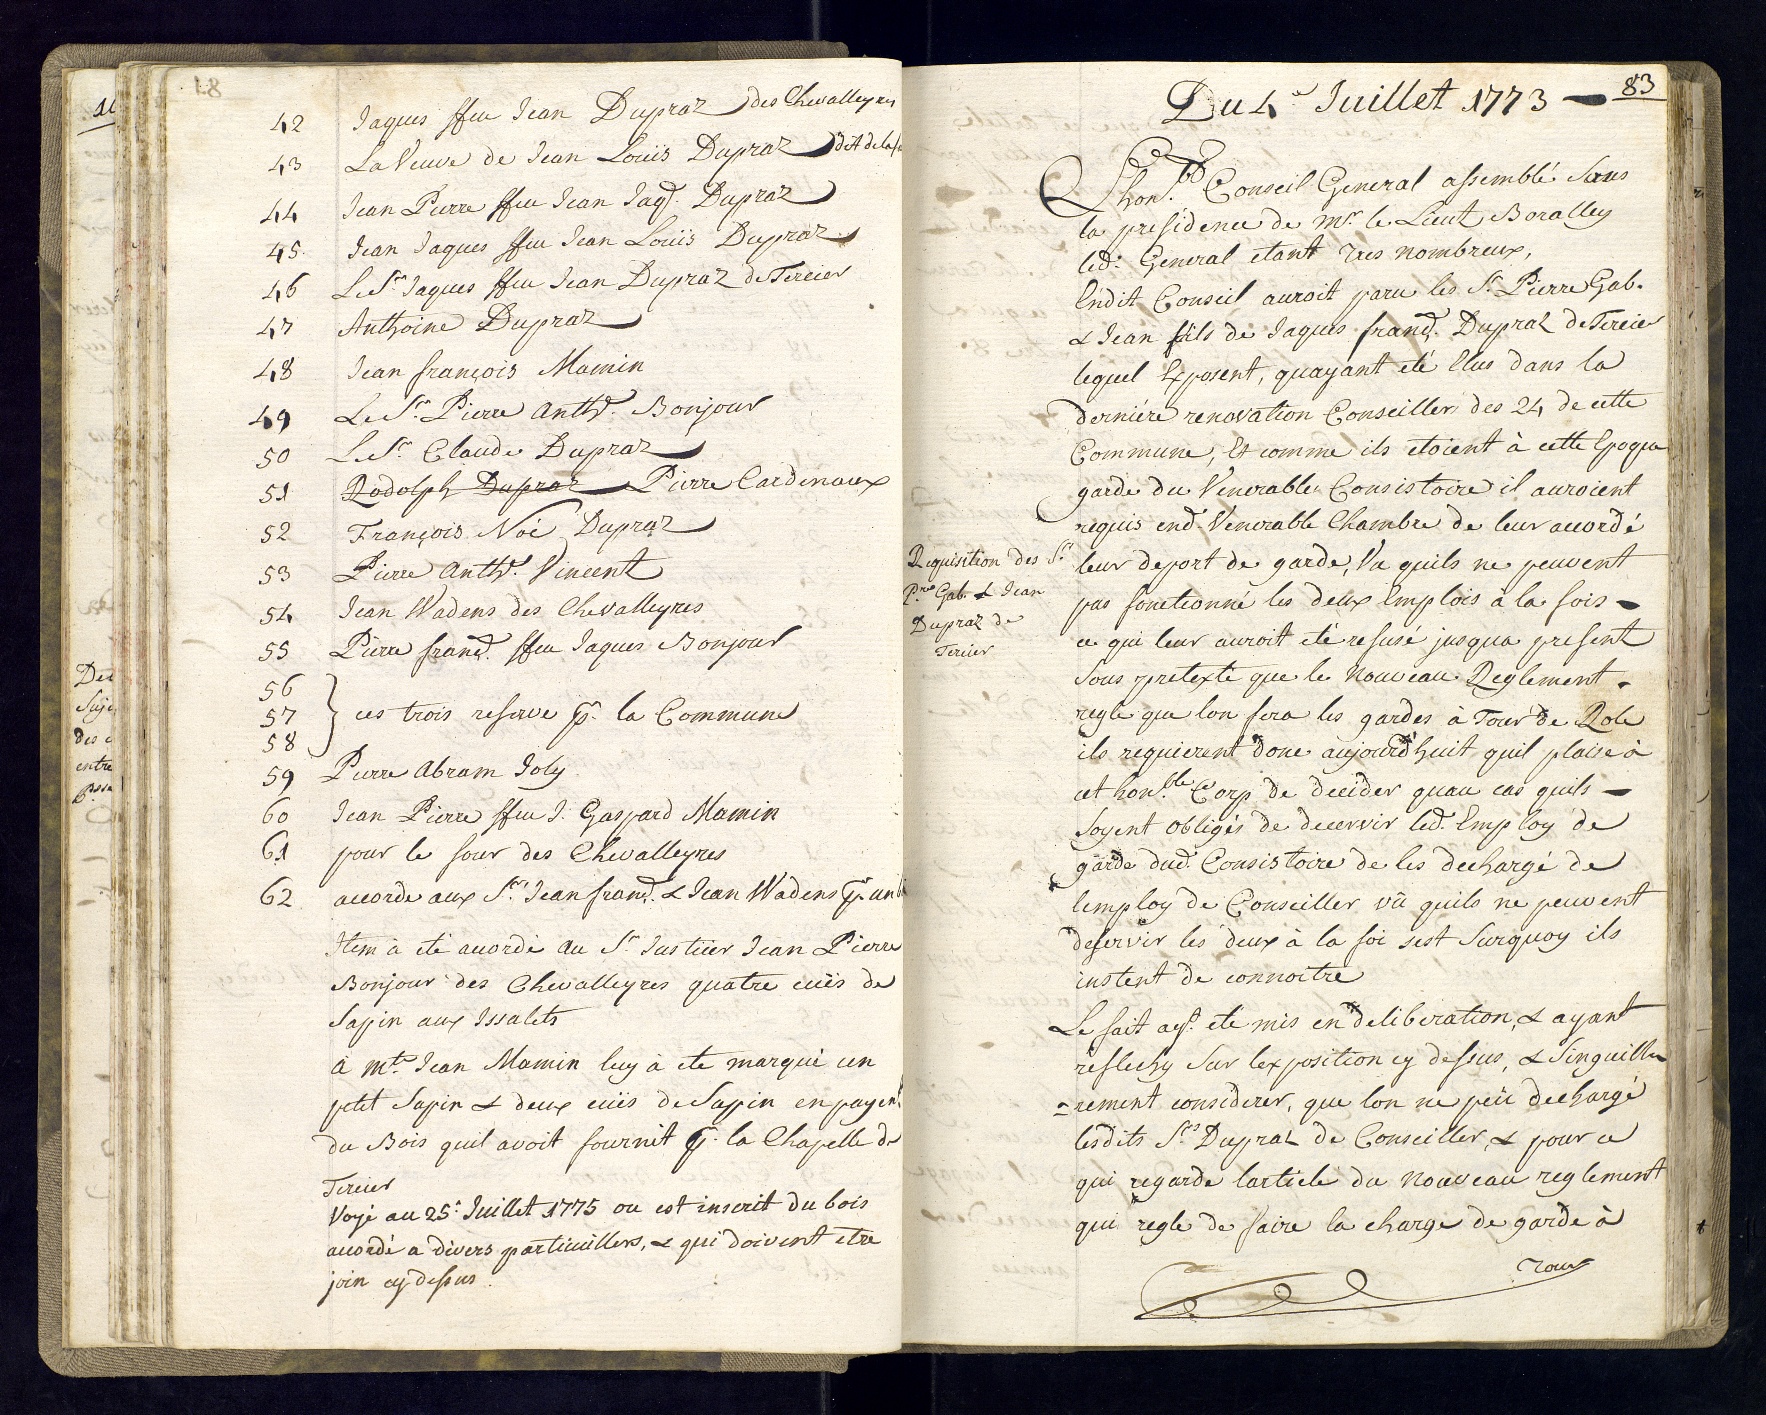 42 Jaques ffeu Jean Dupraz des Chevalleyres
43 La Veuve de Jean Louis Dupraz dit de la
44 Jean Pierre ffeu Jean Jaq.s Dupraz
45 Jean Jaques ffeu Jean Louis Dupraz
46 Le S.r Jaques ffeu Jean Dupraz de Tercier
47 Anthoine Dupraz
48 Jean françois Mamin
49 Le S.r Pierre Anth.e Bonjour
50 Le S.r Claude Dupraz
51 Rodolph Dupraz Pierre Cardinaux
52 François Noé Dupraz
53 Pierre Anth.e Vincent
54 Jean Wadens des Chevalleyres
55 Pierre franç.s ffeu Jaques Bonjour
56
57 ces trois reserve p.r la Commune
58
59 Pierre Abram Joly
60 Jean Pierre ffeu J. Gaspard Mamin
61 pour le four des Chevalleyres
62 accorde aux S.rs Jean franç.s & Jean Wadens p.r un
Item à été accordé au S.r Justicier Jean Pierre
Bonjour des Chevalleyres quatre cüis de
Sapin aux Issalets
à m.tre Jean Mamin luy à ete marqué un
petit Sapin & deux cüis de Sapin en payem.t
du Bois quil avoit fournit p.r la Chapelle de
Tercier
Voyé au 25.e Juillet 1775 ou est inscrit du bois
accordé a divers particuillers, & qui doivent etre
join cy dessus.
83
Du 4.e Juillet 1773
Lhon.ble Conseil General assemblé Sous
la présidence de m.r le Lieut Boralley
led.t General etant tres nombreux,
Endit Conseil auroit paru les S.rs Pierre Gab.
& Jean fils de Jaques franç.s Dupraz de Tercier
lequel Exposent, quayant eté Elus dans la
derniére renovation Conseillers des 24 de cette
Commune, Et comme ils etoient à cette Epoque
garde du Venerable Consistoire il auroient
requis end.t Venerable Chambre de leur accordé
leur deport de garde, Vu quils ne peuvent
pas fonctionné les deux Emplois à la fois
ce qui leur auroit eté refusé jusqua present
Sous pretexte que le nouveau Reglement
regle que lon fera les gardes à Tour de Role
ils requierent donc aujourd'huit quil plaise à
cet hon.ble Corp de decider quau cas quils
Soyent obligés de decervir led.t Employ de
garde dud.t Consistoire de les dechargé de
lemploy de Conseiller vû quils ne peuvent
deservir les deux à la foi sest Surquoy ils
instent de connoitre
Requisition des S.rs
P.re Gab. & Jean
Dupraz de
Tercier
Le fait ay.t eté mis en deliberation, & ayant
réflechy Sur lexposition cy dessus, & Singuille
=rement considerer, que lon ne peüt dechargé
lesdits S.rs Dupraz de Conseiller, & pour ce
qui regarde larticle du nouveau reglement
qui regle de faire la charge de garde à
Tour